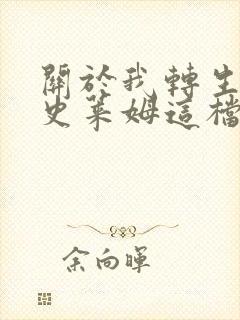 關於我轉生
史萊姆這檔
余向暉